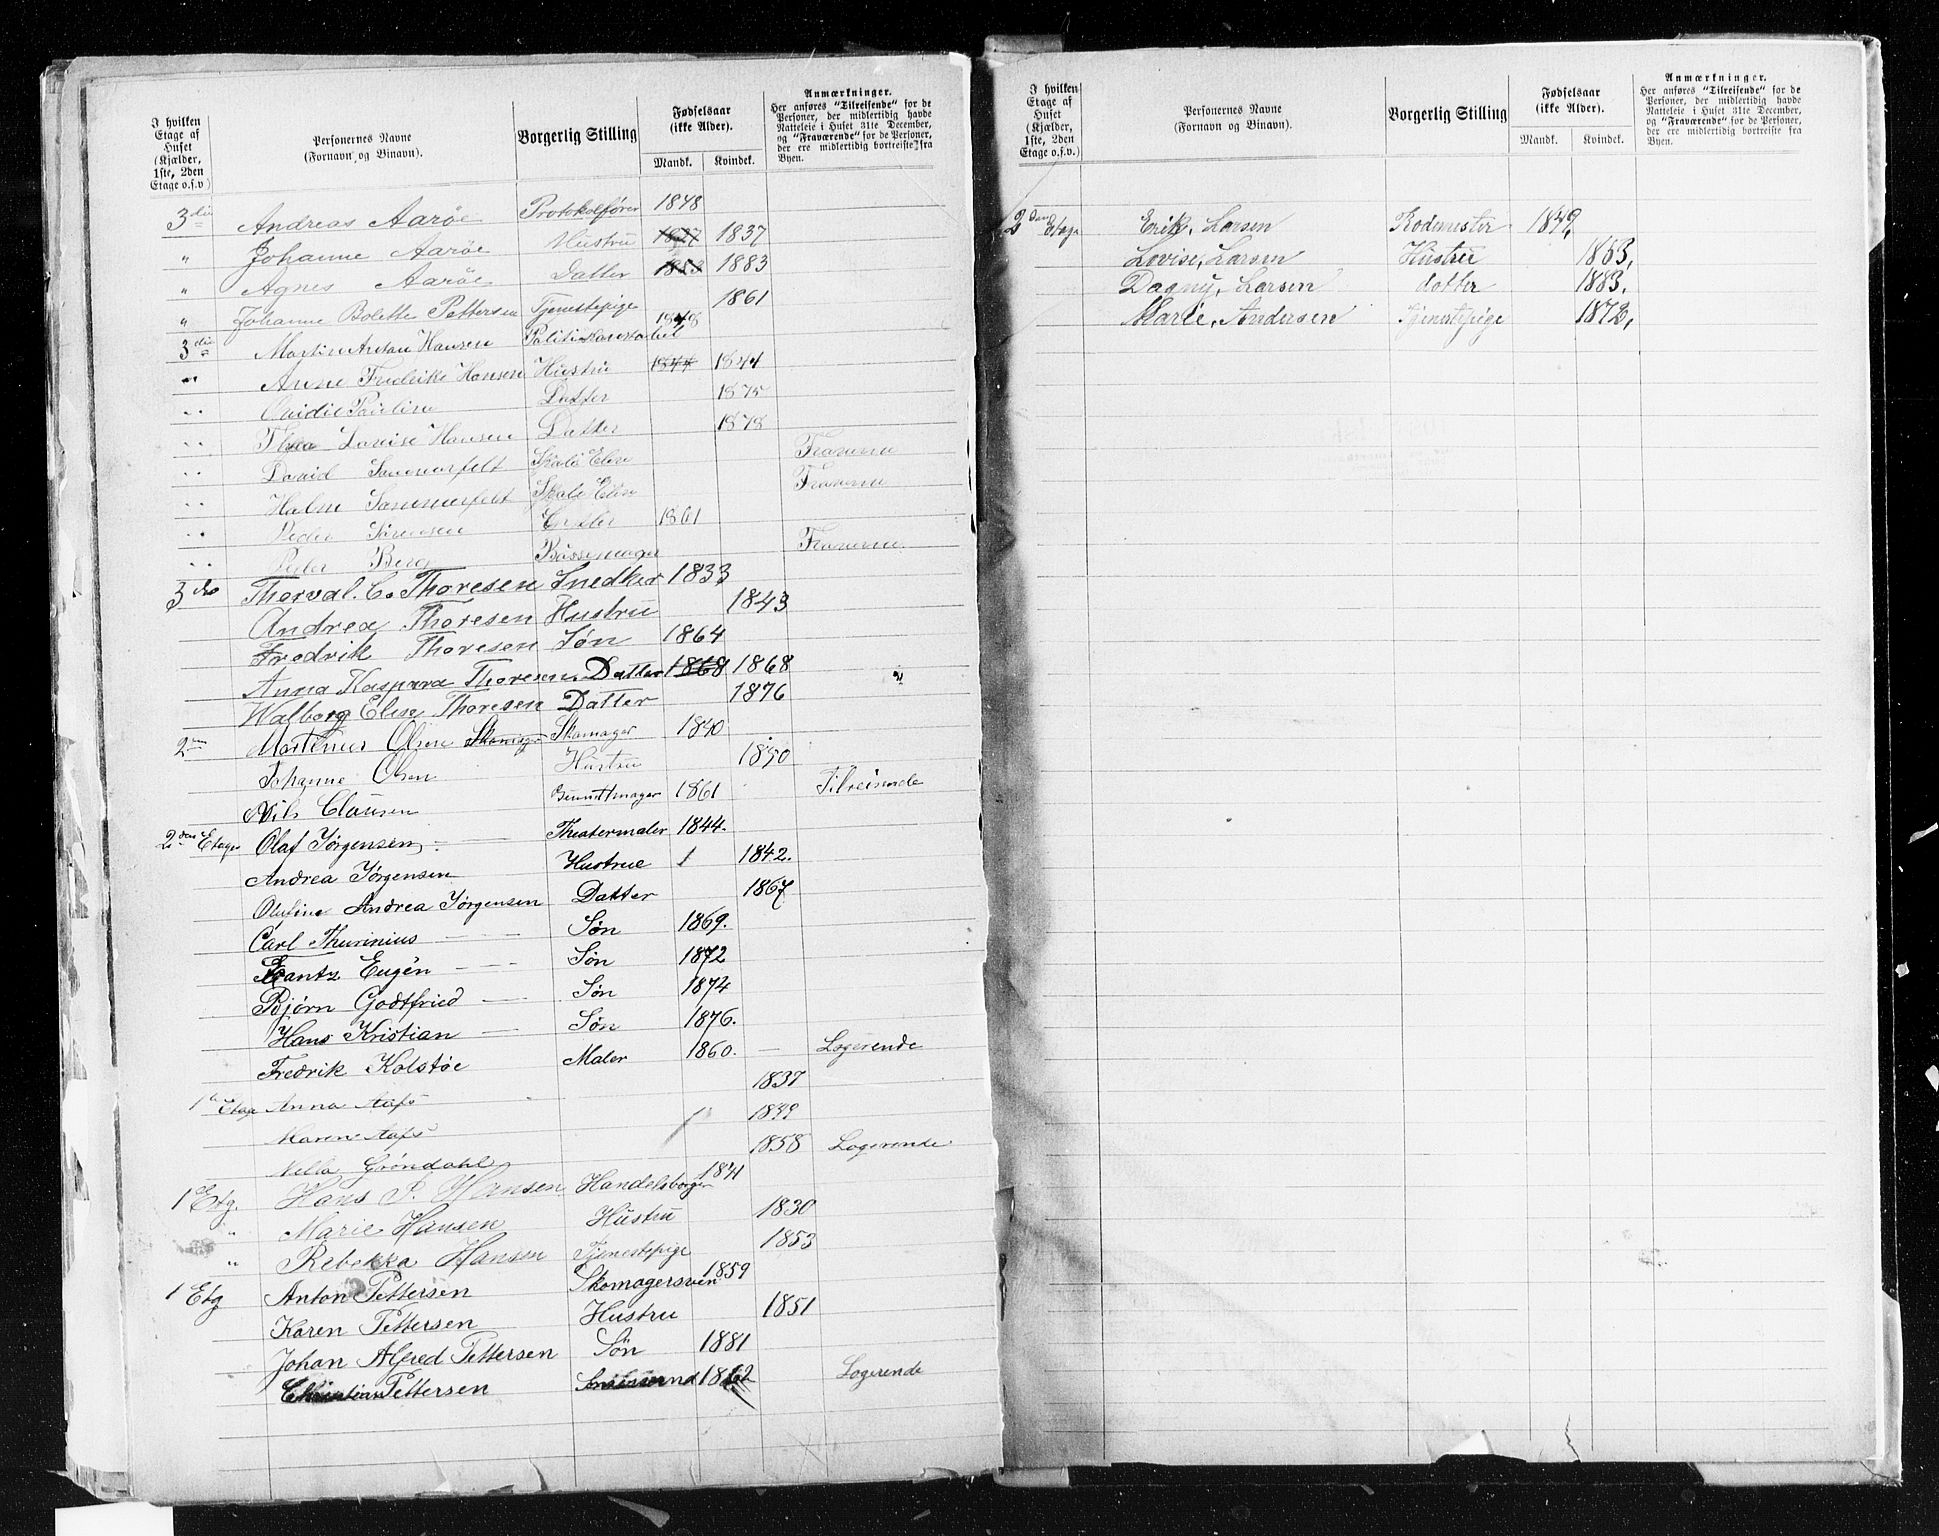 I hvilken Etage af Huset (Kjælder, 1ste, 2den Etage o.s.v.)
Personernes Navne (Fornavn og Binavn).
Borgerlig Stilling
Fødselsaar (ikke Alder).
Mandk. Kvindek.
Anmærkninger.
Her anføres "Tilreisende" for de Personer, der midlertidig havde Natteleie i Huset 31te December, og "Fraværende" for de Personer, der ere midlertidig bortreiste fra Byen.
3die Andreas Aarøe Protokolfører 1848
" Johanne Aarøe Hustru 1827 1837
" Agnes Aarøe Datter 1883 1883
" Johanne Bolette Pettersen Tjenestepige 1861
3die Martin Anton Hansen Politikonstabel 1848
" Anne Fredrike Hansen Hustru 1844 1844
" Ovidie Pauline Datter 1875
" Thea Lovise Hansen Datter 1878
" David Sommerfelt Skole Elev Fraverne
" Halm Sommerfelt Skole Elev Fraverne
" Peder Sørensen 1861
" Peder Berg Bøssemager Fraverne
3die Thorval. C. Thoresen Snedker 1833
Andrea Thoresen Hustru 1843
Fredrik Thoresen Søn 1864
Anna Kaspara Thoresen Datter 1868 1868
Walborg Elise Thoresen Datter 1876
2den Martinus Olsen Skomager Skomager 1840
Johanne Olsen Hustru 1850
Nils Clausen Buntmager 1861 Tilreisende
2den Etage Olaf Jørgensen Theatermaler 1844.
Andrea Jørgensen Hustrue 1842.
Olufine Andrea Jørgensen Datter 1867
Carl Thurinius — Søn 1869.
Frantz Eugén — Søn 1872
Bjørn Godtfried — Søn 1874
Hans Kristian — Søn 1876.
Fredrik Kolstøe Maler 1860. — Logerende
1ste Etage Anna Aafs 1837
Maren Aafs 1849
Nella Grøndahl 1858 Logerende
1 Etg. Hans P. Hansen Handelsborger 1841
" Marie Hansen Hustru 1830
" Rebekka Hansen Tjenestepige 1853
1 Etg Anton Pettersen Skomagersven 1859
Karen Pettersen Hustru 1851
Johan Alfred Pettersen Søn 1881
Christian Pettersen 1862 Logerende
I hvilken Etage af Huset (Kjælder, 1ste, 2den Etage o.s.v.)
Personernes Navne (Fornavn og Binavn).
Borgerlig Stilling
Fødselsaar (ikke Alder).
Mandk. Kvindek.
Anmærkninger.
Her anføres "Tilreisende" for de Personer, der midlertidig havde Natteleie i Huset 31te December, og "Fraværende" for de Personer, der ere midlertidig bortreiste fra Byen.
2den Etage Erik, Larsen Rodemester 1849,
Lovise, Larsen Hustru 1853,
Dagny, Larsen datter 1883,
Marie, Andersen Tjenestepige 1872,